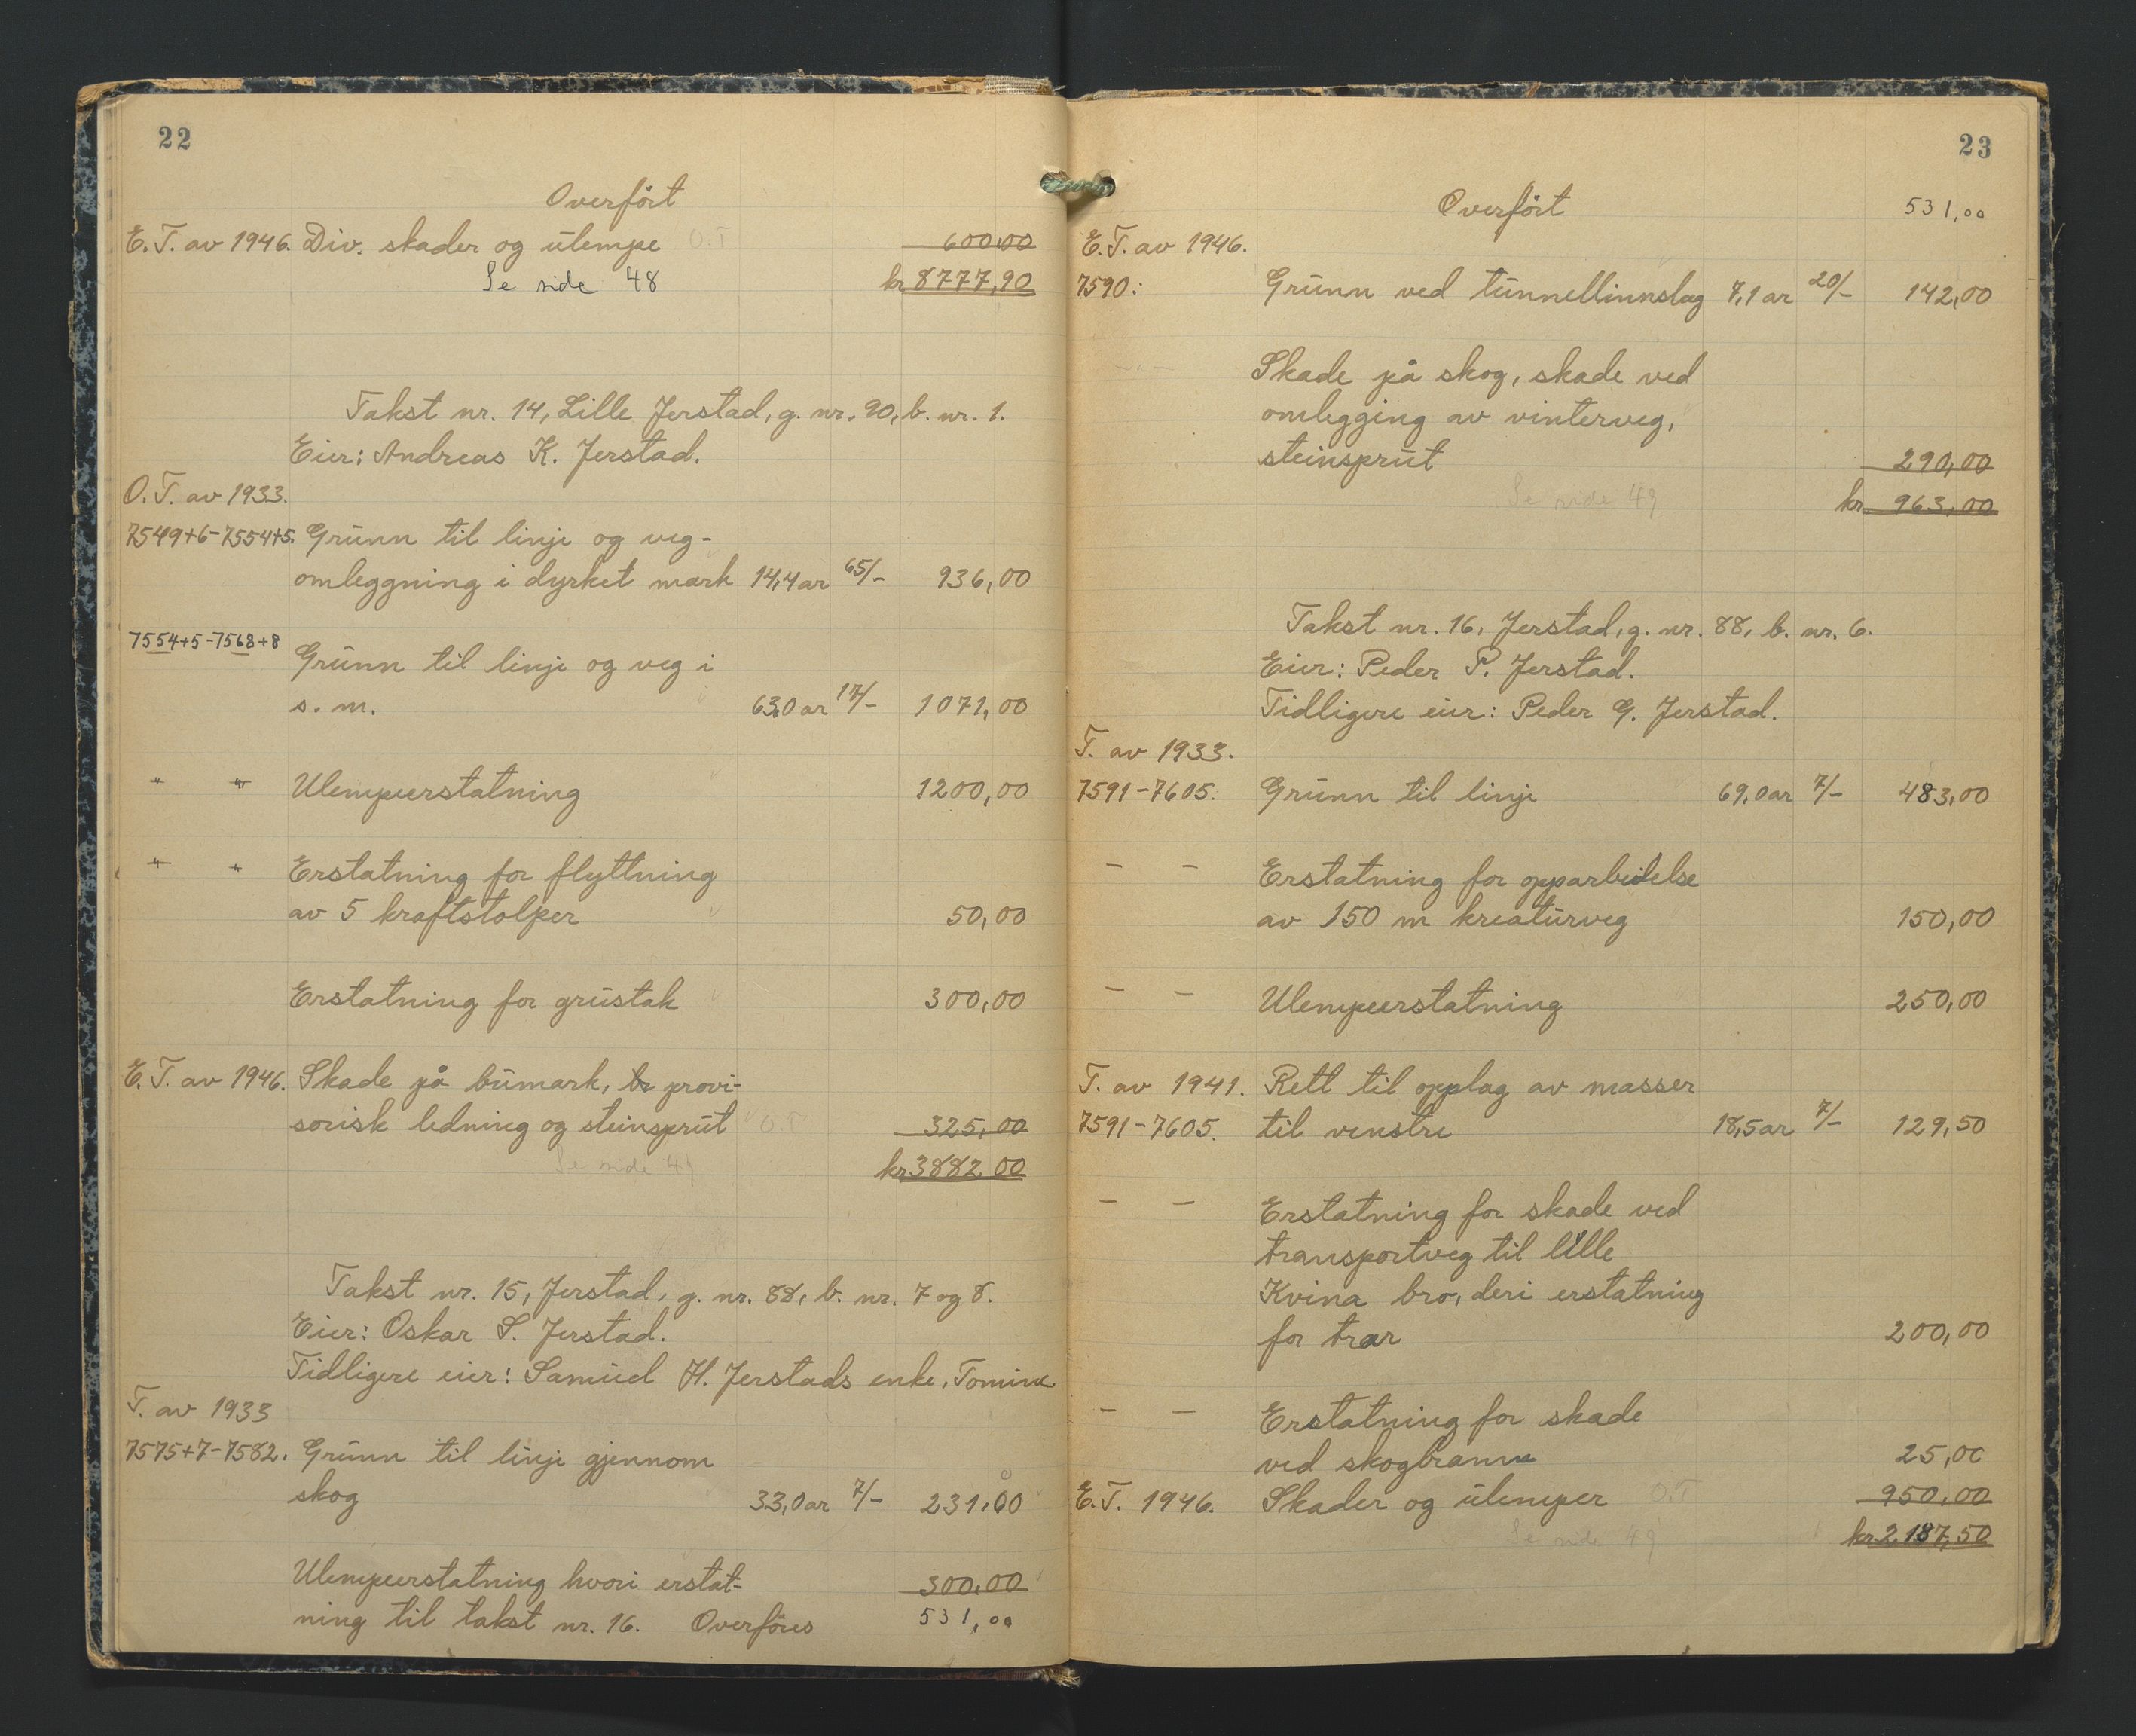 22
Overført
E.T. av 1946. Div. skader og ulempe O.T 600,00
Se side 48 kr 8777,90
Takst nr. 14, Lille Jerstad, g. nr. 90, b. nr. 1.
Eier: Andreas K. Jerstad.
O.T. av 1933.
7549+6-7554+5. Grunn til linje og veg-
omleggning i dyrket mark 14,4 ar 65/- 936,00
7554+5-7568+8
Grunn til linje og veg i
s. m. 63,0 ar 17/- 1071,00
" " Ulempeerstatning 1200,00
" " Erstatning for flyttning
av 5 kraftstolper 50,00
Erstatning for grustak 300,00
E.T. av 1946. Skade på bumark, provi-
sorisk ledning og steinsprut O.T 325,00
Se side 49 kr 3882,00
Takst nr. 15, Jerstad, g. nr. 88, b. nr. 7 og 8.
Eier: Oskar S. Jerstad.
Tidligere eier: Samuel H. Jerstads enke, Tomine
T. av 1933
7575+7-7582. Grunn til linje gjennom
skog 33,0 ar 7/- 231,00
Ulempeerstatning hvori erstat- 300,00
ning til takst nr. 16. Overføres 531,00
23
Overført 531,00
E.T. av 1946.
7590: Grunn ved tunnellinnslag 7,1 ar 20/- 142,00
- - Skade på skog, skade ved
omlegging av vinterveg,
steinsprut 290,00
Se side 49 kr 963,00
Takst nr. 16, Jerstad, g. nr. 88, b. nr. 6.
Eier: Peder P. Jerstad.
Tidligere eier: Peder G. Jerstad.
T. av 1933.
7591-7605. Grunn til linje 69,0 ar 7/- 483,00
- - Erstatning for opparbeidelse
av 150 m kreaturveg 150,00
- - Ulempeerstatning 250,00
T. av 1941. Rett til opplag av masser
7591-7605. til venstre 18,5 ar 7/- 129,50
- - Erstatning for skade ved
transportveg til lille
Kvina bro, deri erstatning
for trær 200,00
- - Erstatning for skade
ved skogbrann 25,00
E.T. 1946. Skader og ulemper O.T 950,00
Se side 49 kr 2187,50